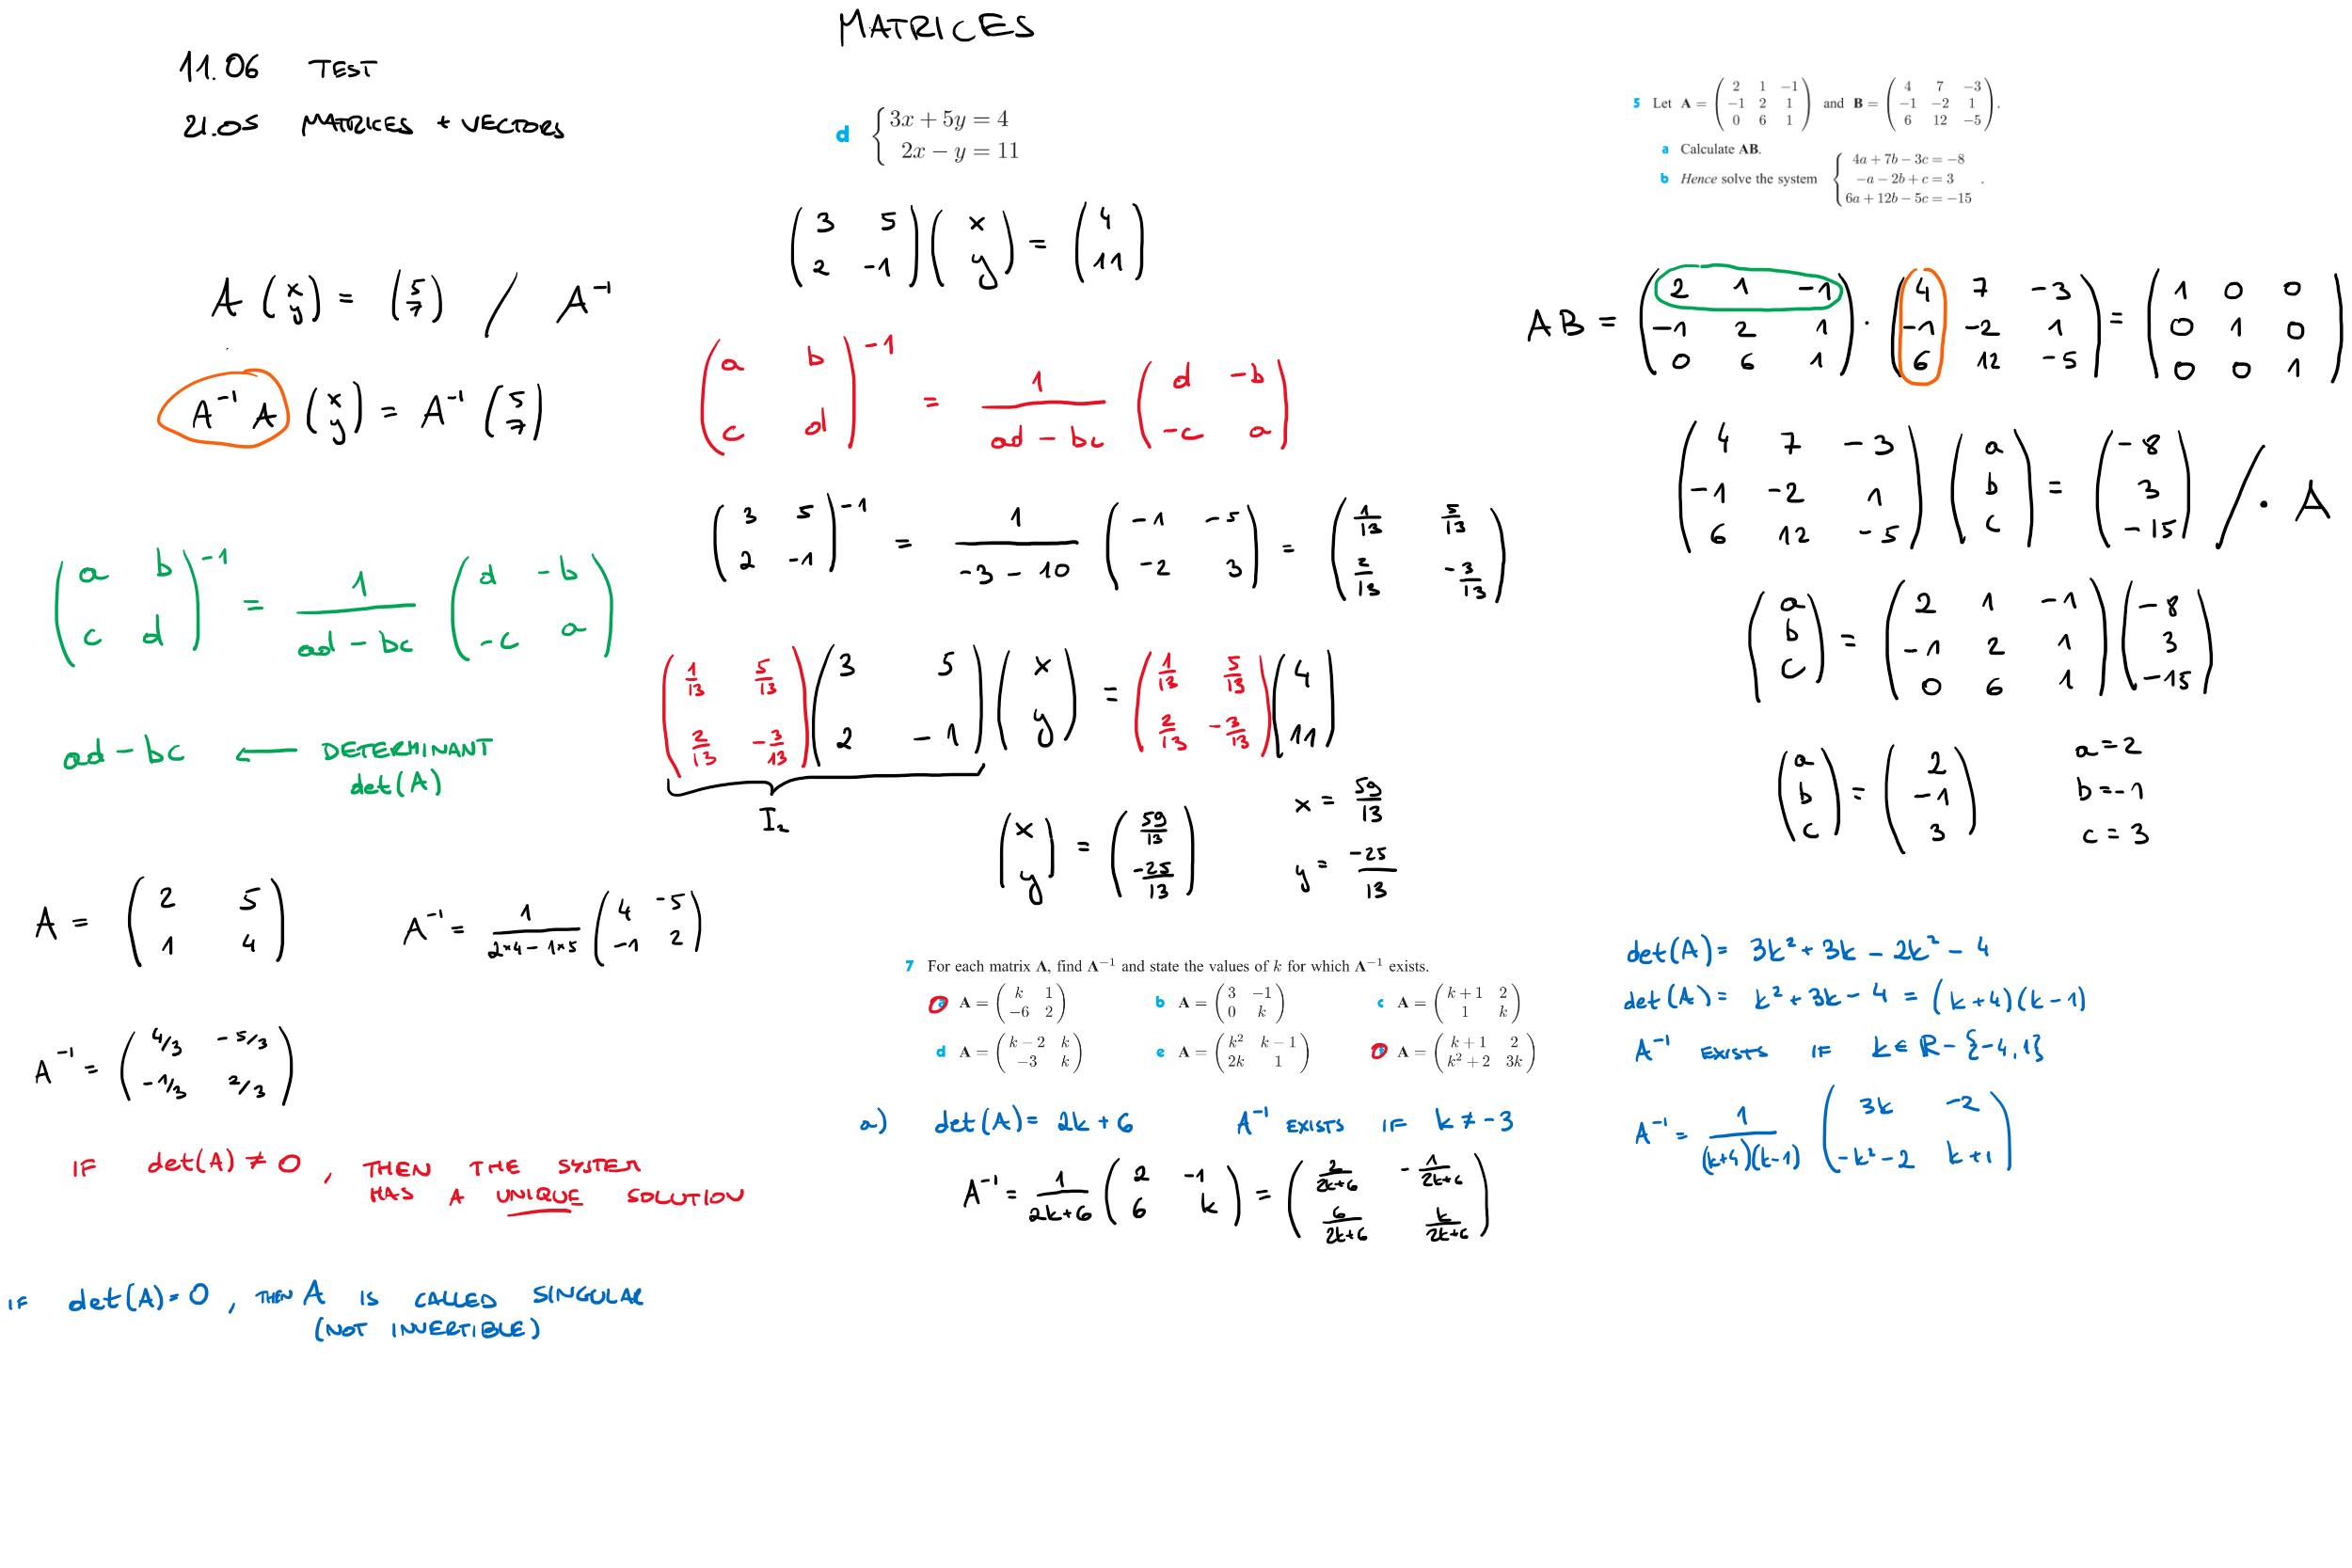 MATRICES
11.06 TEST
21.05 MATRICES + VECTORS
A (x y) = (5 7) / A⁻¹
A⁻¹ A (x y) = A⁻¹ (5 7)
(a b; c d)⁻¹ = 1/(ad - bc) (d -b; -c a)
ad - bc ← DETERMINANT
det(A)
A = (2 5; 1 4) A⁻¹ = 1/(2×4 - 1×5) (4 -5; -1 2)
A⁻¹ = (4/3 -5/3; -1/3 2/3)
IF det(A) ≠ 0, THEN THE SYSTEM
HAS A UNIQUE SOLUTION
IF det(A) = 0, THEN A IS CALLED SINGULAR
(NOT INVERTIBLE)
d { 3x + 5y = 4
2x − y = 11
(3 5; 2 -1) (x y) = (4 11)
(a b; c d)⁻¹ = 1/(ad - bc) (d -b; -c a)
(3 5; 2 -1)⁻¹ = 1/(-3 - 10) (-1 -5; -2 3) = (1/13 5/13; 2/13 -3/13)
(1/13 5/13; 2/13 -3/13) (3 5; 2 -1) (x y) = (1/13 5/13; 2/13 -3/13) (4 11)
I₂
(x y) = (59/13 -25/13) x = 59/13
y = -25/13
7 For each matrix A, find A⁻¹ and state the values of k for which A⁻¹ exists.
a A = (k 1; −6 2) b A = (3 −1; 0 k) c A = (k + 1 2; 1 k)
d A = (k − 2 k; −3 k) e A = (k² k − 1; 2k 1) f A = (k + 1 2; k² + 2 3k)
a) det(A) = 2k + 6 A⁻¹ EXISTS IF k ≠ -3
A⁻¹ = 1/(2k+6) (2 -1; 6 k) = (2/(2k+6) -1/(2k+6); 6/(2k+6) k/(2k+6))
5 Let A = (2 1 −1; −1 2 1; 0 6 1) and B = (4 7 −3; −1 −2 1; 6 12 −5).
a Calculate AB.
b Hence solve the system { 4a + 7b − 3c = −8
−a − 2b + c = 3 .
6a + 12b − 5c = −15
AB = (2 1 -1; -1 2 1; 0 6 1) · (4 7 -3; -1 -2 1; 6 12 -5) = (1 0 0; 0 1 0; 0 0 1)
(4 7 -3; -1 -2 1; 6 12 -5) (a b c) = (-8 3 -15) / · A
(a b c) = (2 1 -1; -1 2 1; 0 6 1) (-8 3 -15)
(a b c) = (2 -1 3) a = 2
b = -1
c = 3
det(A) = 3k² + 3k - 2k² - 4
det(A) = k² + 3k - 4 = (k+4)(k-1)
A⁻¹ EXISTS IF k ∈ ℝ - {-4, 1}
A⁻¹ = 1/((k+4)(k-1)) (3k -2; -k²-2 k+1)